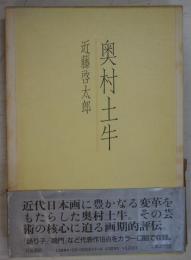 奥村土牛
近藤啓太郎
近代日本画に豊かなる変革を
もたらした奥村土牛。その芸
術の核心に迫る画期的評伝。
「踊り子」「鳴門」など代表作16点をカラー口絵で収録。